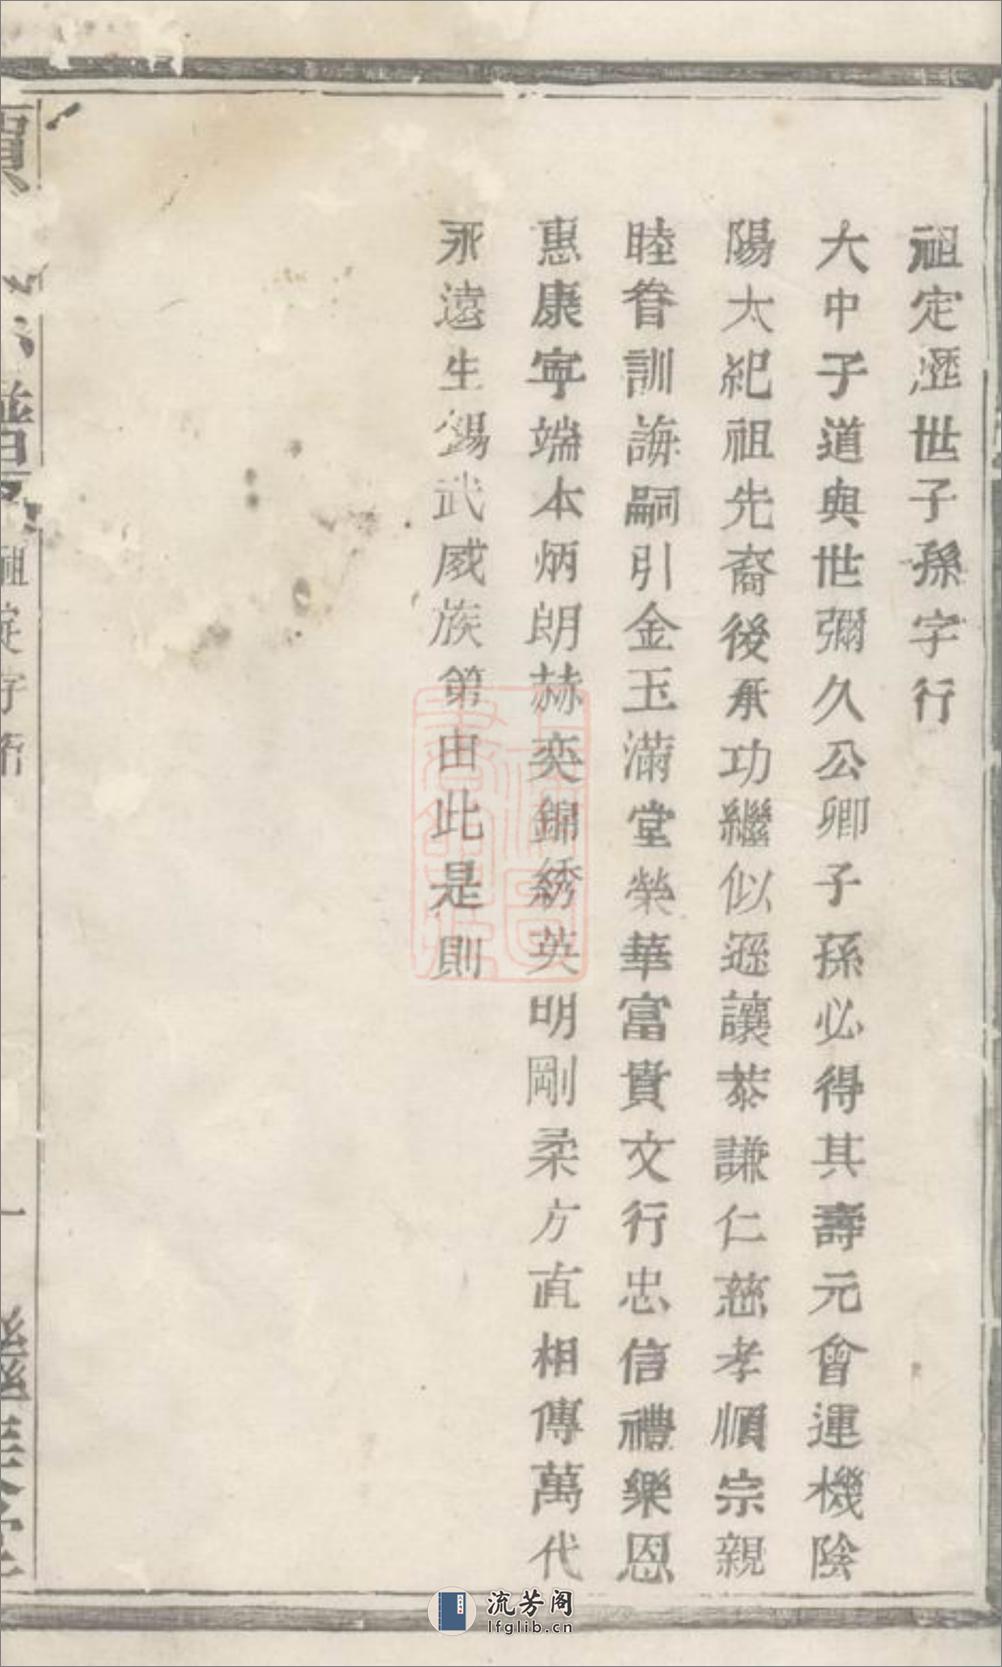 祖定歷世子孫字行
大中子道與世彌久公卿子孫必得其壽元會運機陰
陽太祀祖先裔後承功繼似遜讓恭謙仁慈孝順宗親
睦眷訓誨嗣引金玉滿堂榮華富貴文行忠信禮樂恩
惠康寧端本炳朗赫奕錦綉英明剛柔方直相傳萬代
永遠生錫武威族第由此是則
賈
譜
祖定字行
一
流芳阁
lfglib.cn